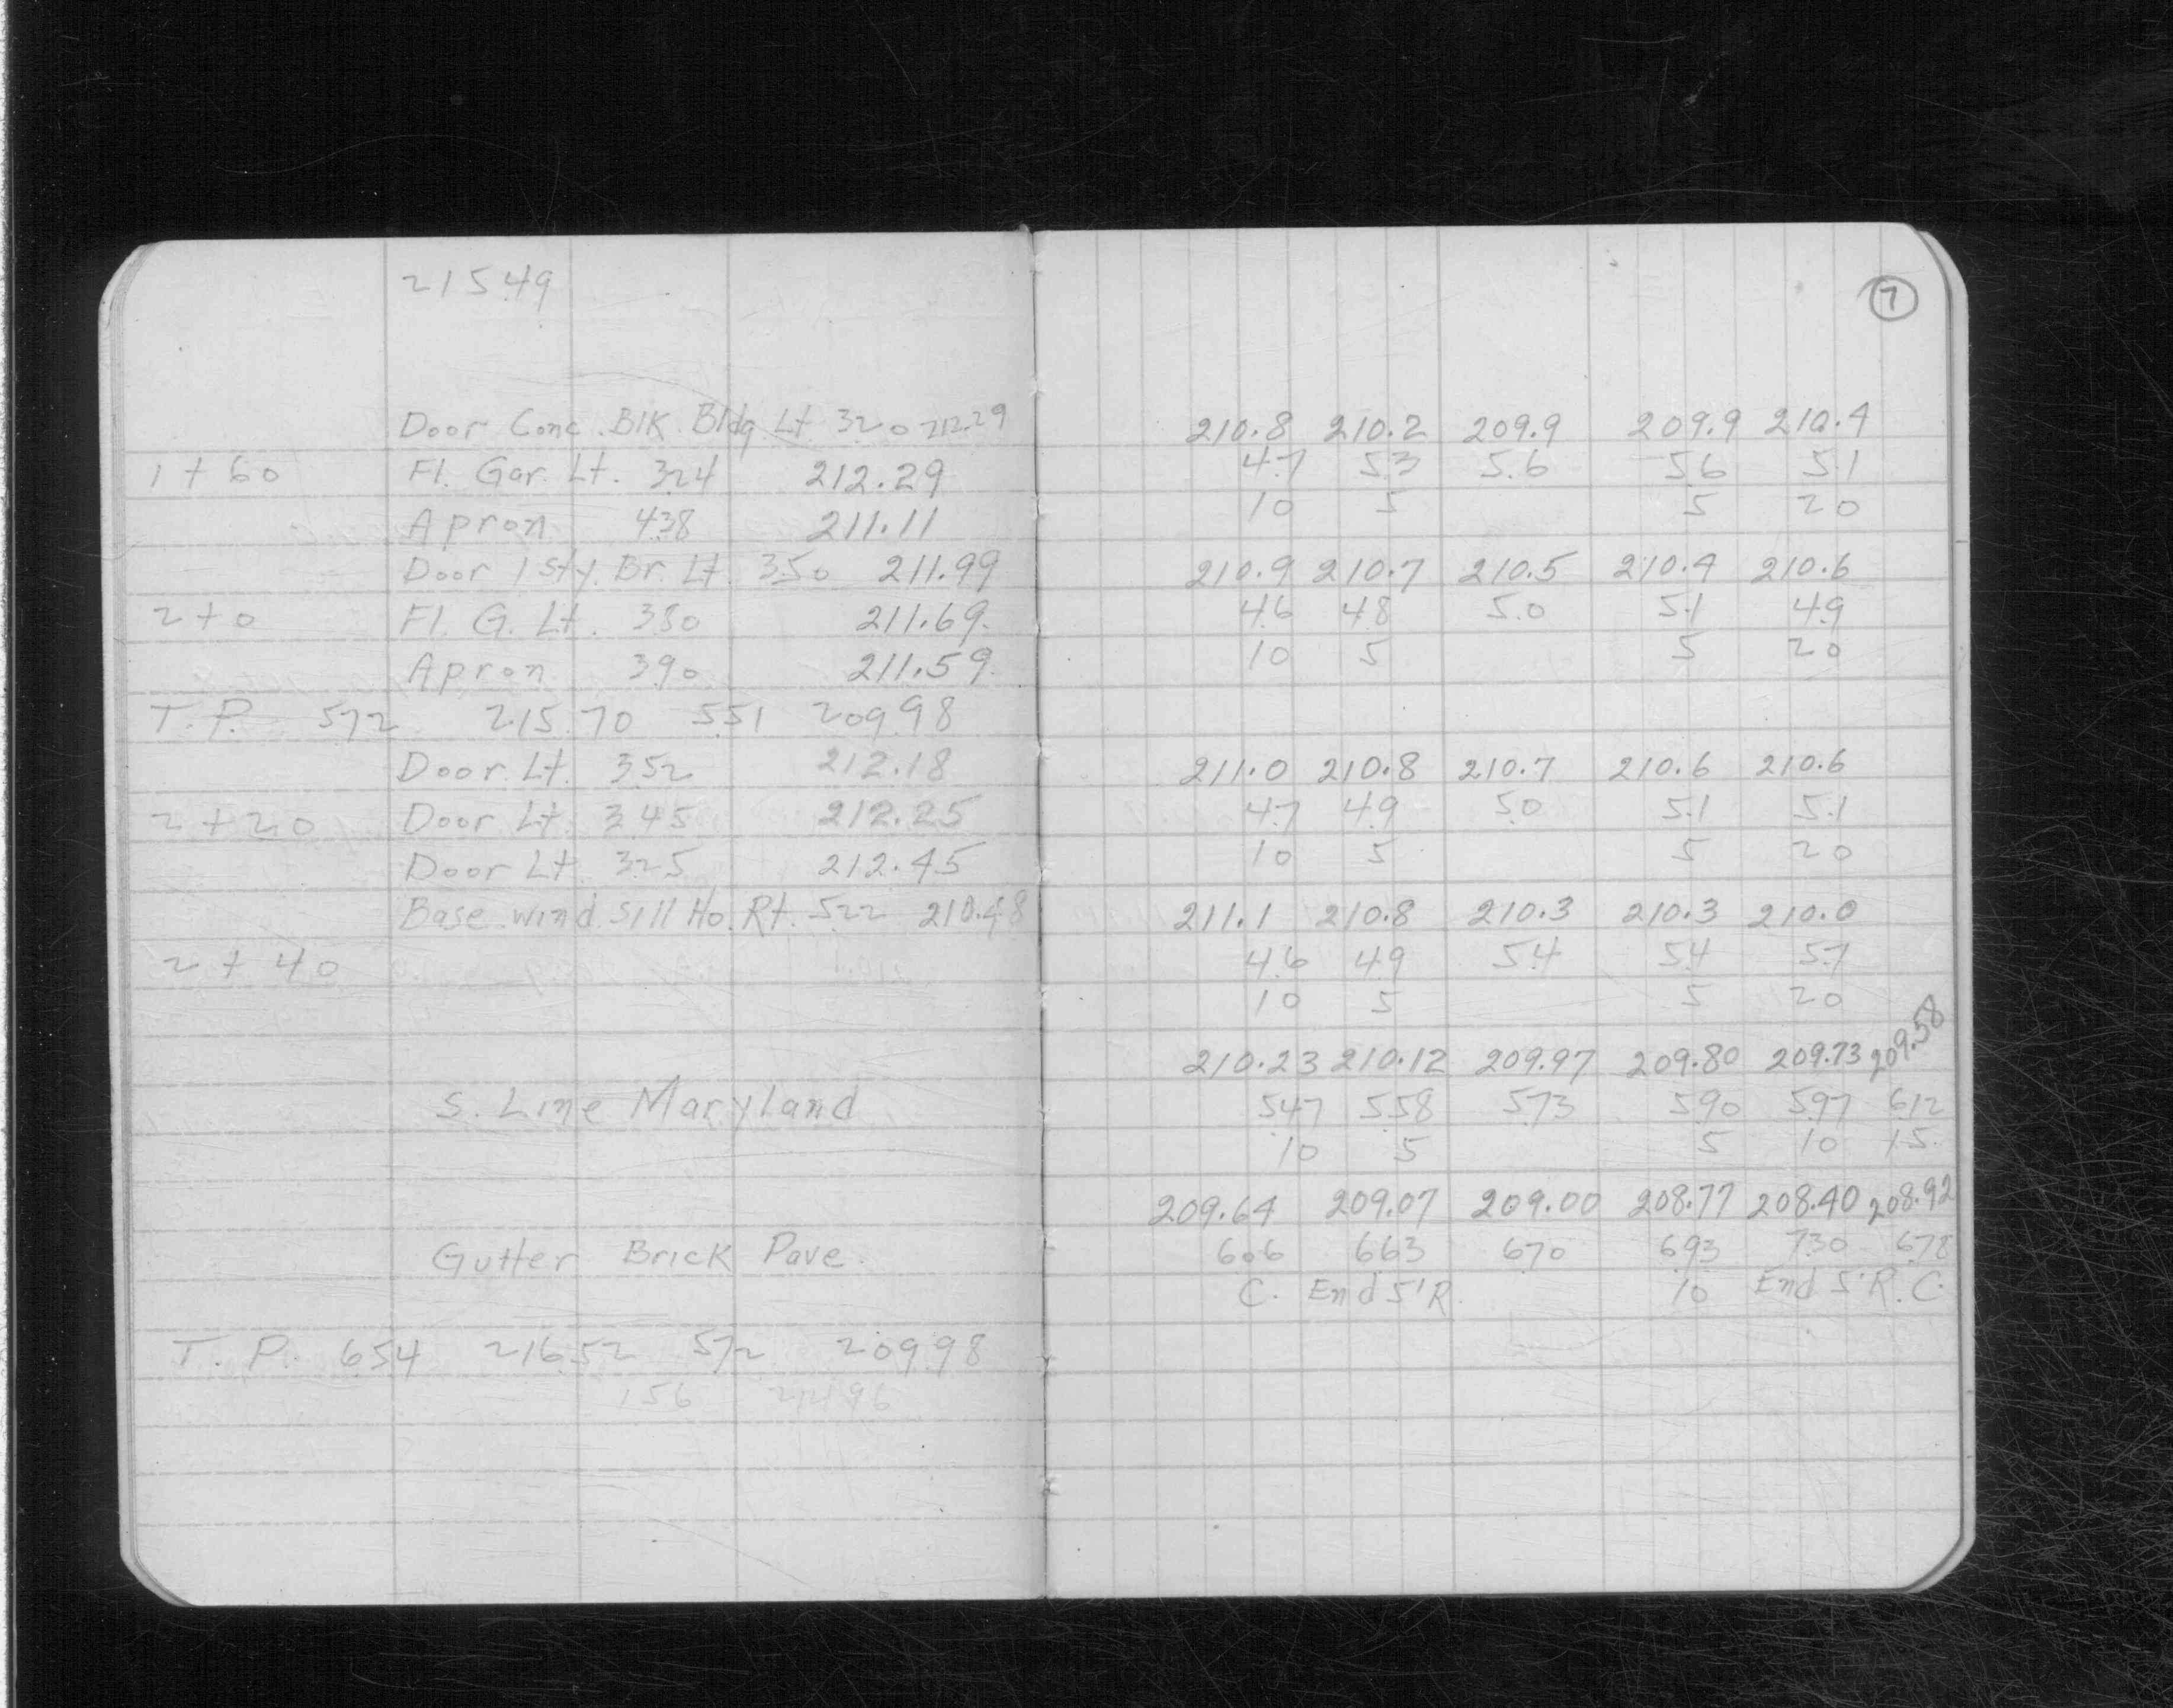 21549
Door Conc. Blk. Bldg. Lt 320 212.29
1+60 Fl. Gar. Lt. 324 212.29
Apron 438 211.11
Door 1 Sty. Br. Lt. 350 211.99
2+0 Fl. G. Lt. 380 211.69
Apron 390 211.59
T. P. 572 215.70 551 20998
Door Lt. 352 212.18
2+20 Door Lt. 345 212.25
Door Lt. 325 212.45
Base wind. Sill Ho. Rt. 522 210.48
2+40
S. Line Maryland
Gutter Brick Pave.
T. P. 654 21652 572 20998
156 21496
7
210.8 210.2 209.9 209.9 210.4
4.7 5.3 5.6 5.6 5.1
10 5 5 20
210.9 210.7 210.5 210.4 210.6
4.6 4.8 5.0 5.1 4.9
10 5 5 20
211.0 210.8 210.7 210.6 210.6
4.7 4.9 5.0 5.1 5.1
10 5 5 20
211.1 210.8 210.3 210.3 210.0
4.6 4.9 5.4 5.4 5.7
10 5 5 20
210.23 210.12 209.97 209.80 209.73 209.58
547 558 573 590 597 612
10 5 5 10 15
209.64 209.07 209.00 208.77 208.40 208.92
606 663 670 693 730 678
C. End 5'R. 10 End 5'R. C.